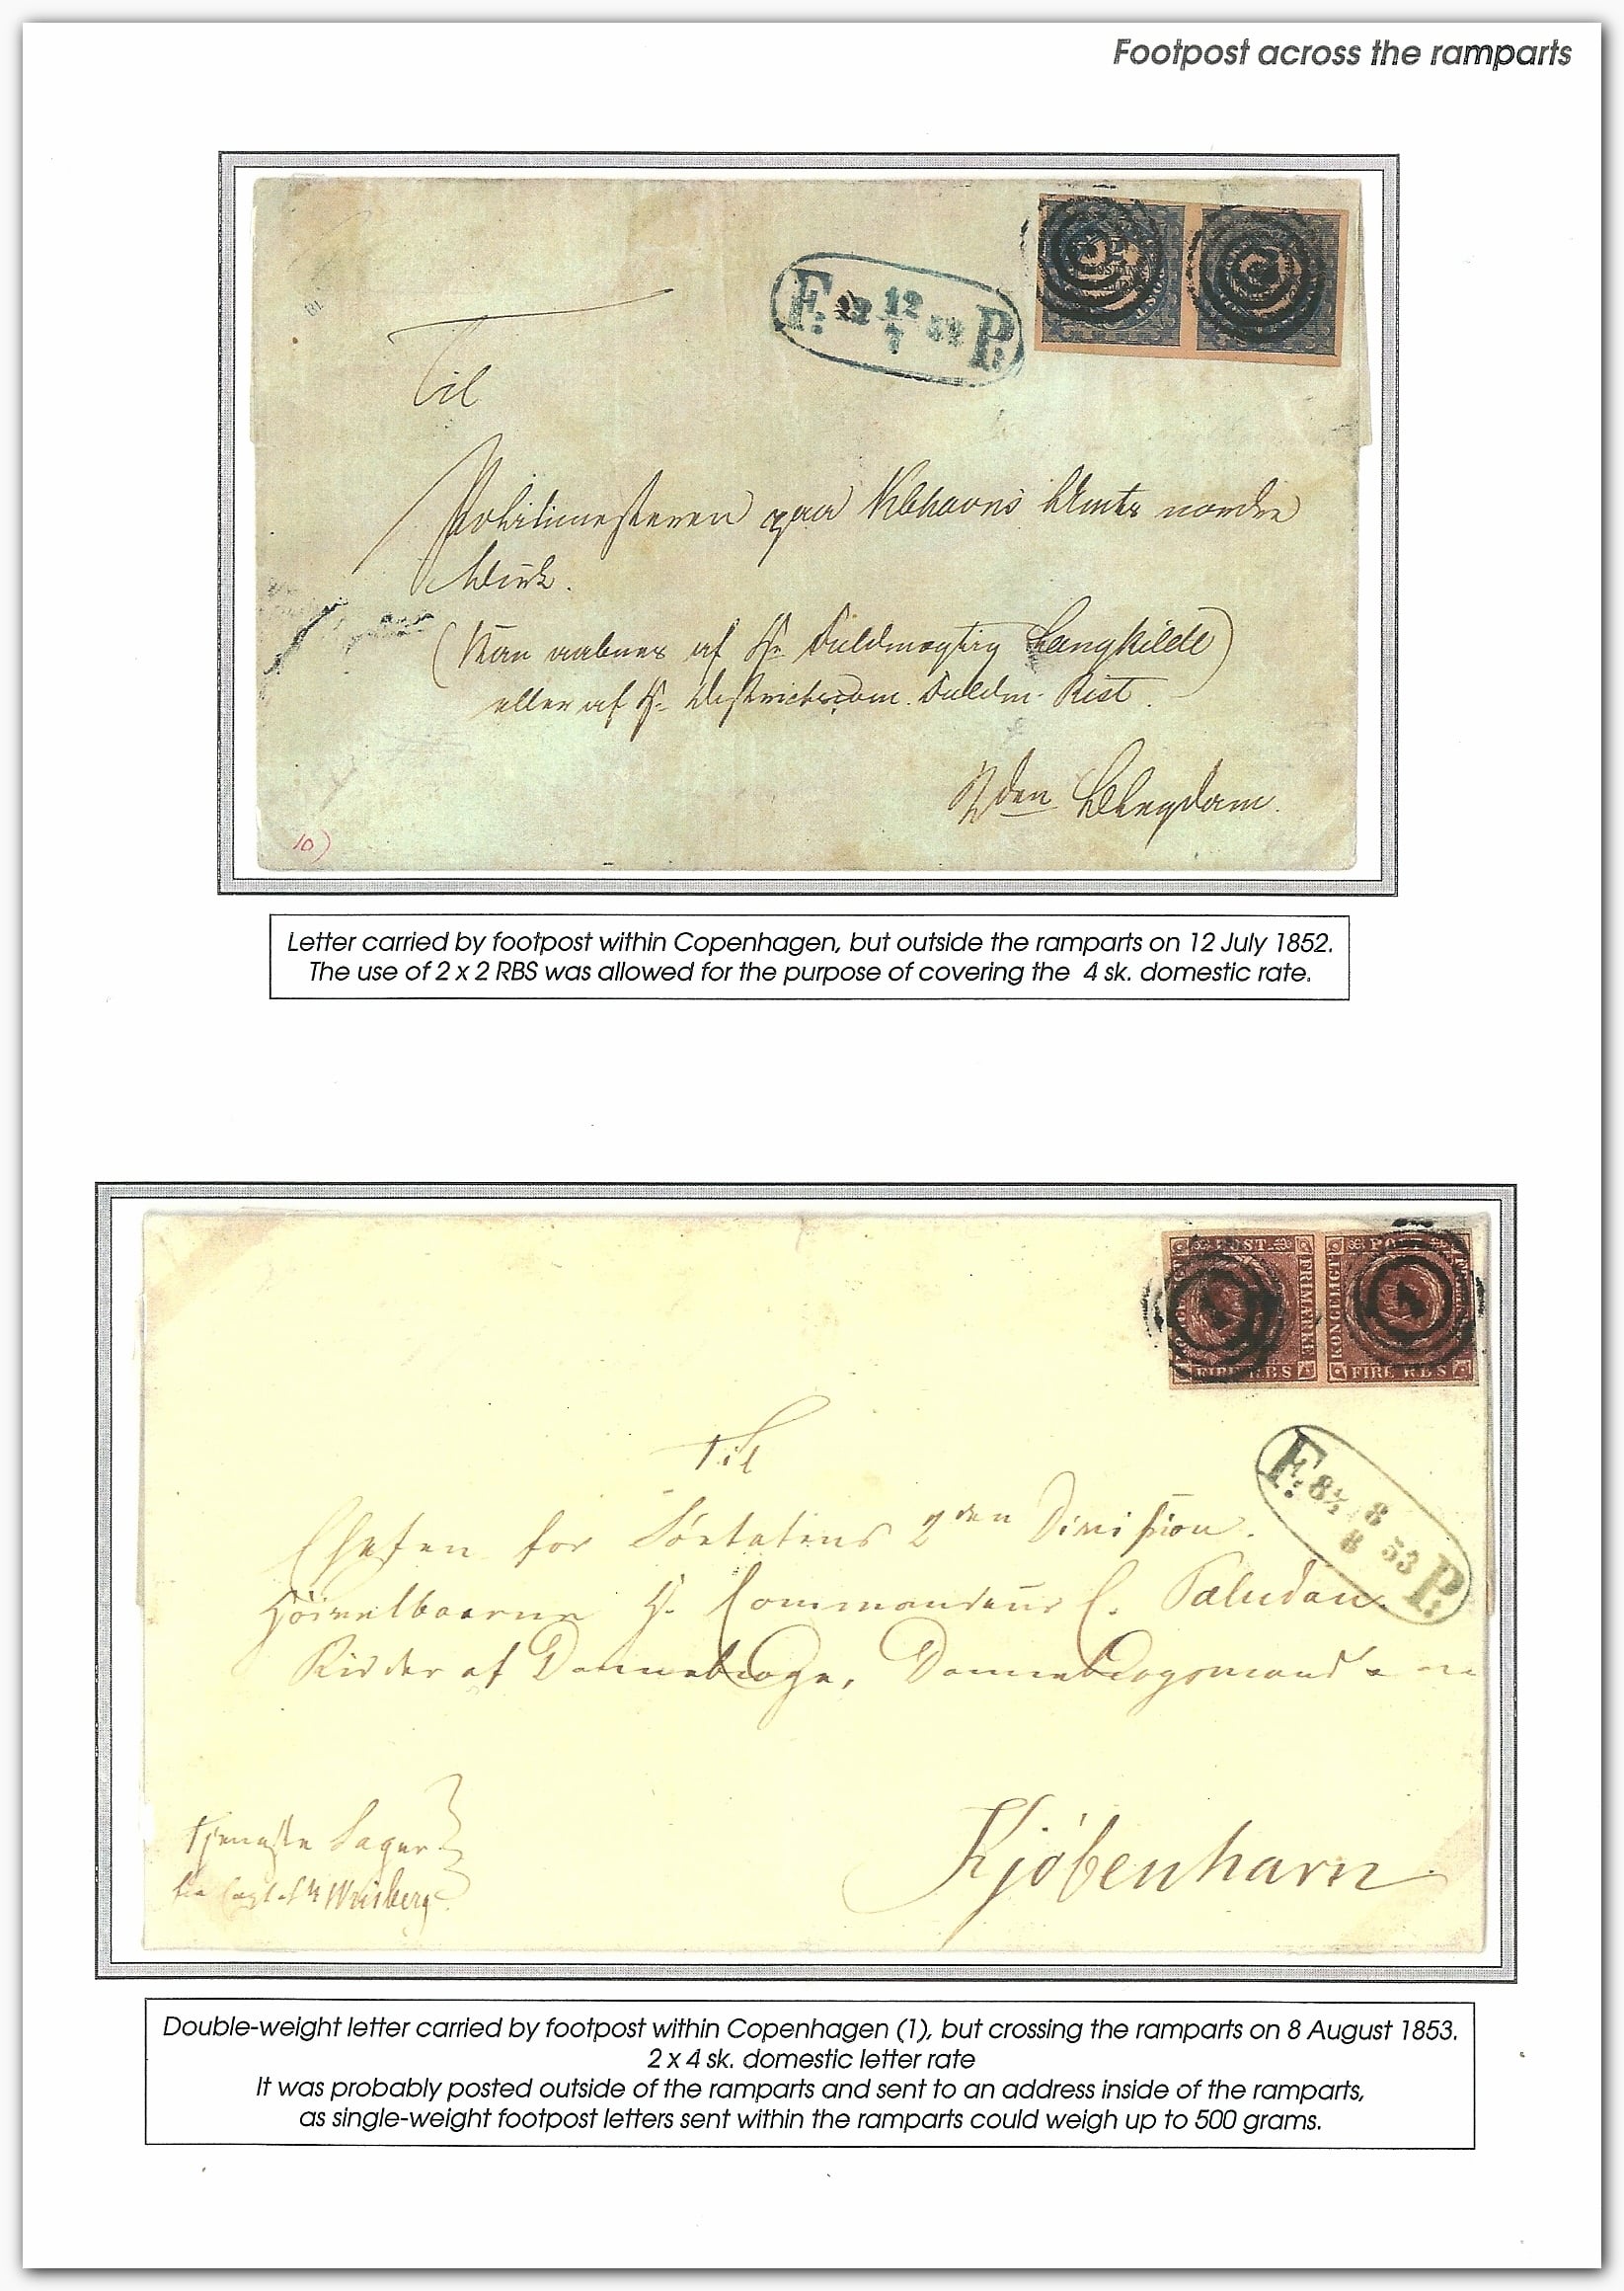 Footpost across the ramparts
F. 12 12/7 52 P.
Til
Politimesteren paa Kbhavns Amts nordre
Birk.
(Kan aabnes af Hr Fuldmægtig Langkilde)
eller af Hr. Fuldm. Rist.
Blegdam.
10)
Letter carried by footpost within Copenhagen, but outside the ramparts on 12 July 1852.
The use of 2 x 2 RBS was allowed for the purpose of covering the 4 sk. domestic rate.
POST
KONGELIGT FRIMÆRKE
FIRE R.B.S
FIRE R.B.S
F. 8½ 8/8 53 P.
Til
Chefen for Søetatens 2den Division.
Høivelbaarne Hr. Commandeur C. Paludan.
Ridder af Dannebroge, Dannebrogsmand
Tjeneste Sager
Wrisberg
Kjøbenhavn
Double-weight letter carried by footpost within Copenhagen (1), but crossing the ramparts on 8 August 1853.
2 x 4 sk. domestic letter rate
It was probably posted outside of the ramparts and sent to an address inside of the ramparts,
as single-weight footpost letters sent within the ramparts could weigh up to 500 grams.